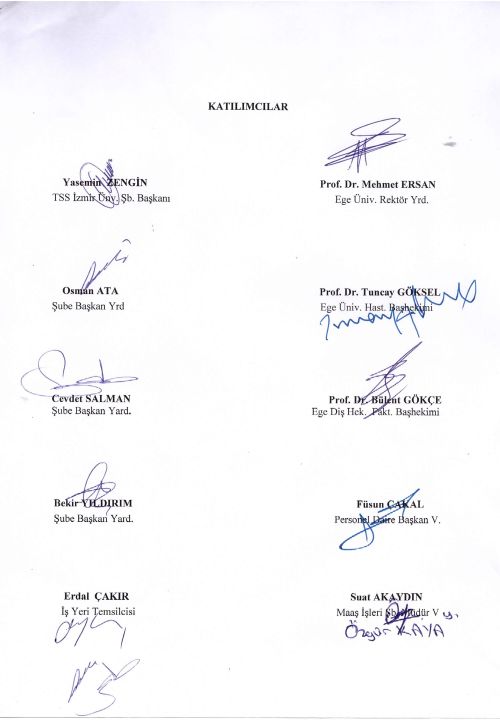 KATILIMCILAR
Yasemin ZENGİN
TSS İzmir Üny. Şb. Başkanı
Prof. Dr. Mehmet ERSAN
Ege Üniv. Rektör Yrd.
Osman ATA
Şube Başkan Yrd
Prof. Dr. Tuncay GÖKSEL
Ege Üniv. Hast. Başhekimi
Cevdet SALMAN
Şube Başkan Yard.
Prof. Dr. Bülent GÖKÇE
Ege Diş Hek. Fakt. Başhekimi
Bekir YILDIRIM
Şube Başkan Yard.
Füsun ÇAKAL
Personel Daire Başkan V.
Erdal ÇAKIR
İş Yeri Temsilcisi
Suat AKAYDIN
Maaş İşleri Şb. Müdür V y.
Özgür KAYA